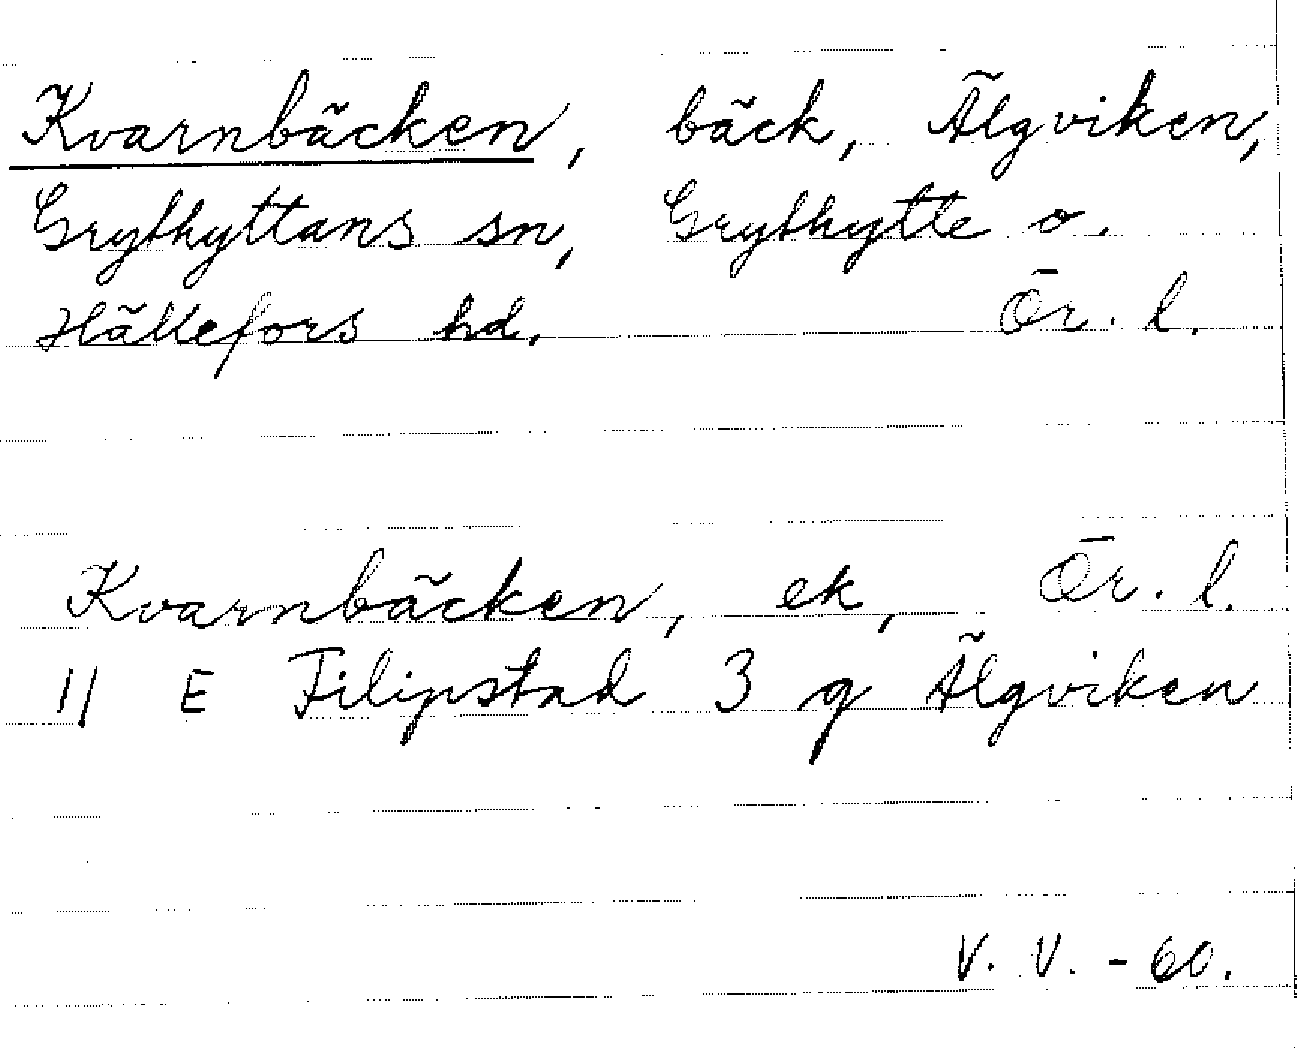 Kvarnbäcken, bäck, Älgviken,
Grythyttans sn, Grythytte o.
Hällefors hd. Ör. l.
Kvarnbäcken, ek, Ör. l.
11 E Filipstad 3 g Älgviken
V. V. - 60.